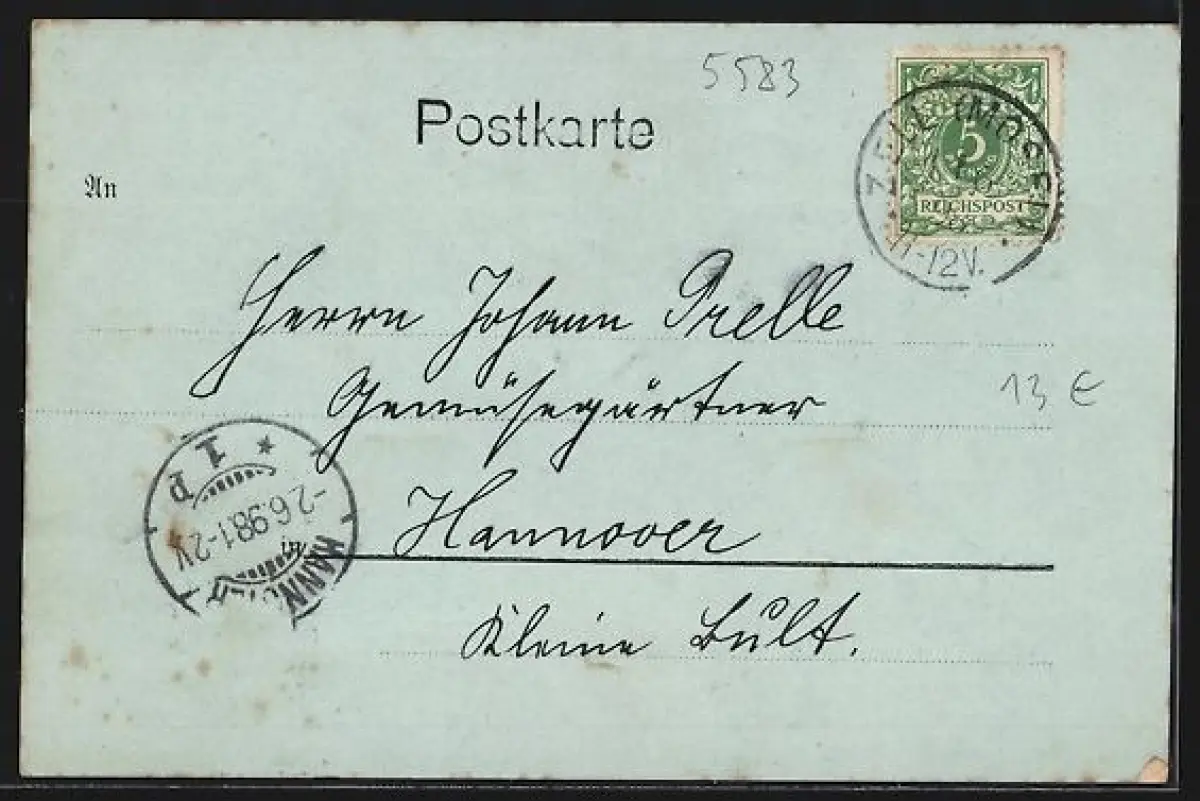 5583
Postkarte
ZELL (MOSEL)
5
REICHSPOST
11-12V.
An
Herrn Johann Prelle
Gemüsegärtner
13 €
Hannover
Kleine Bult.
HANNOVER
-2.6.98.1-2V.
* 1 d